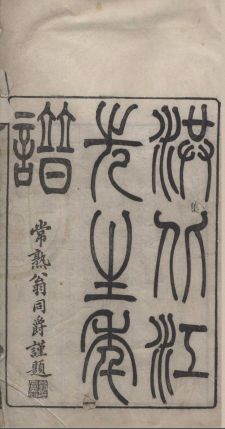 洪北江
先生年
譜
常熟翁同爵謹題